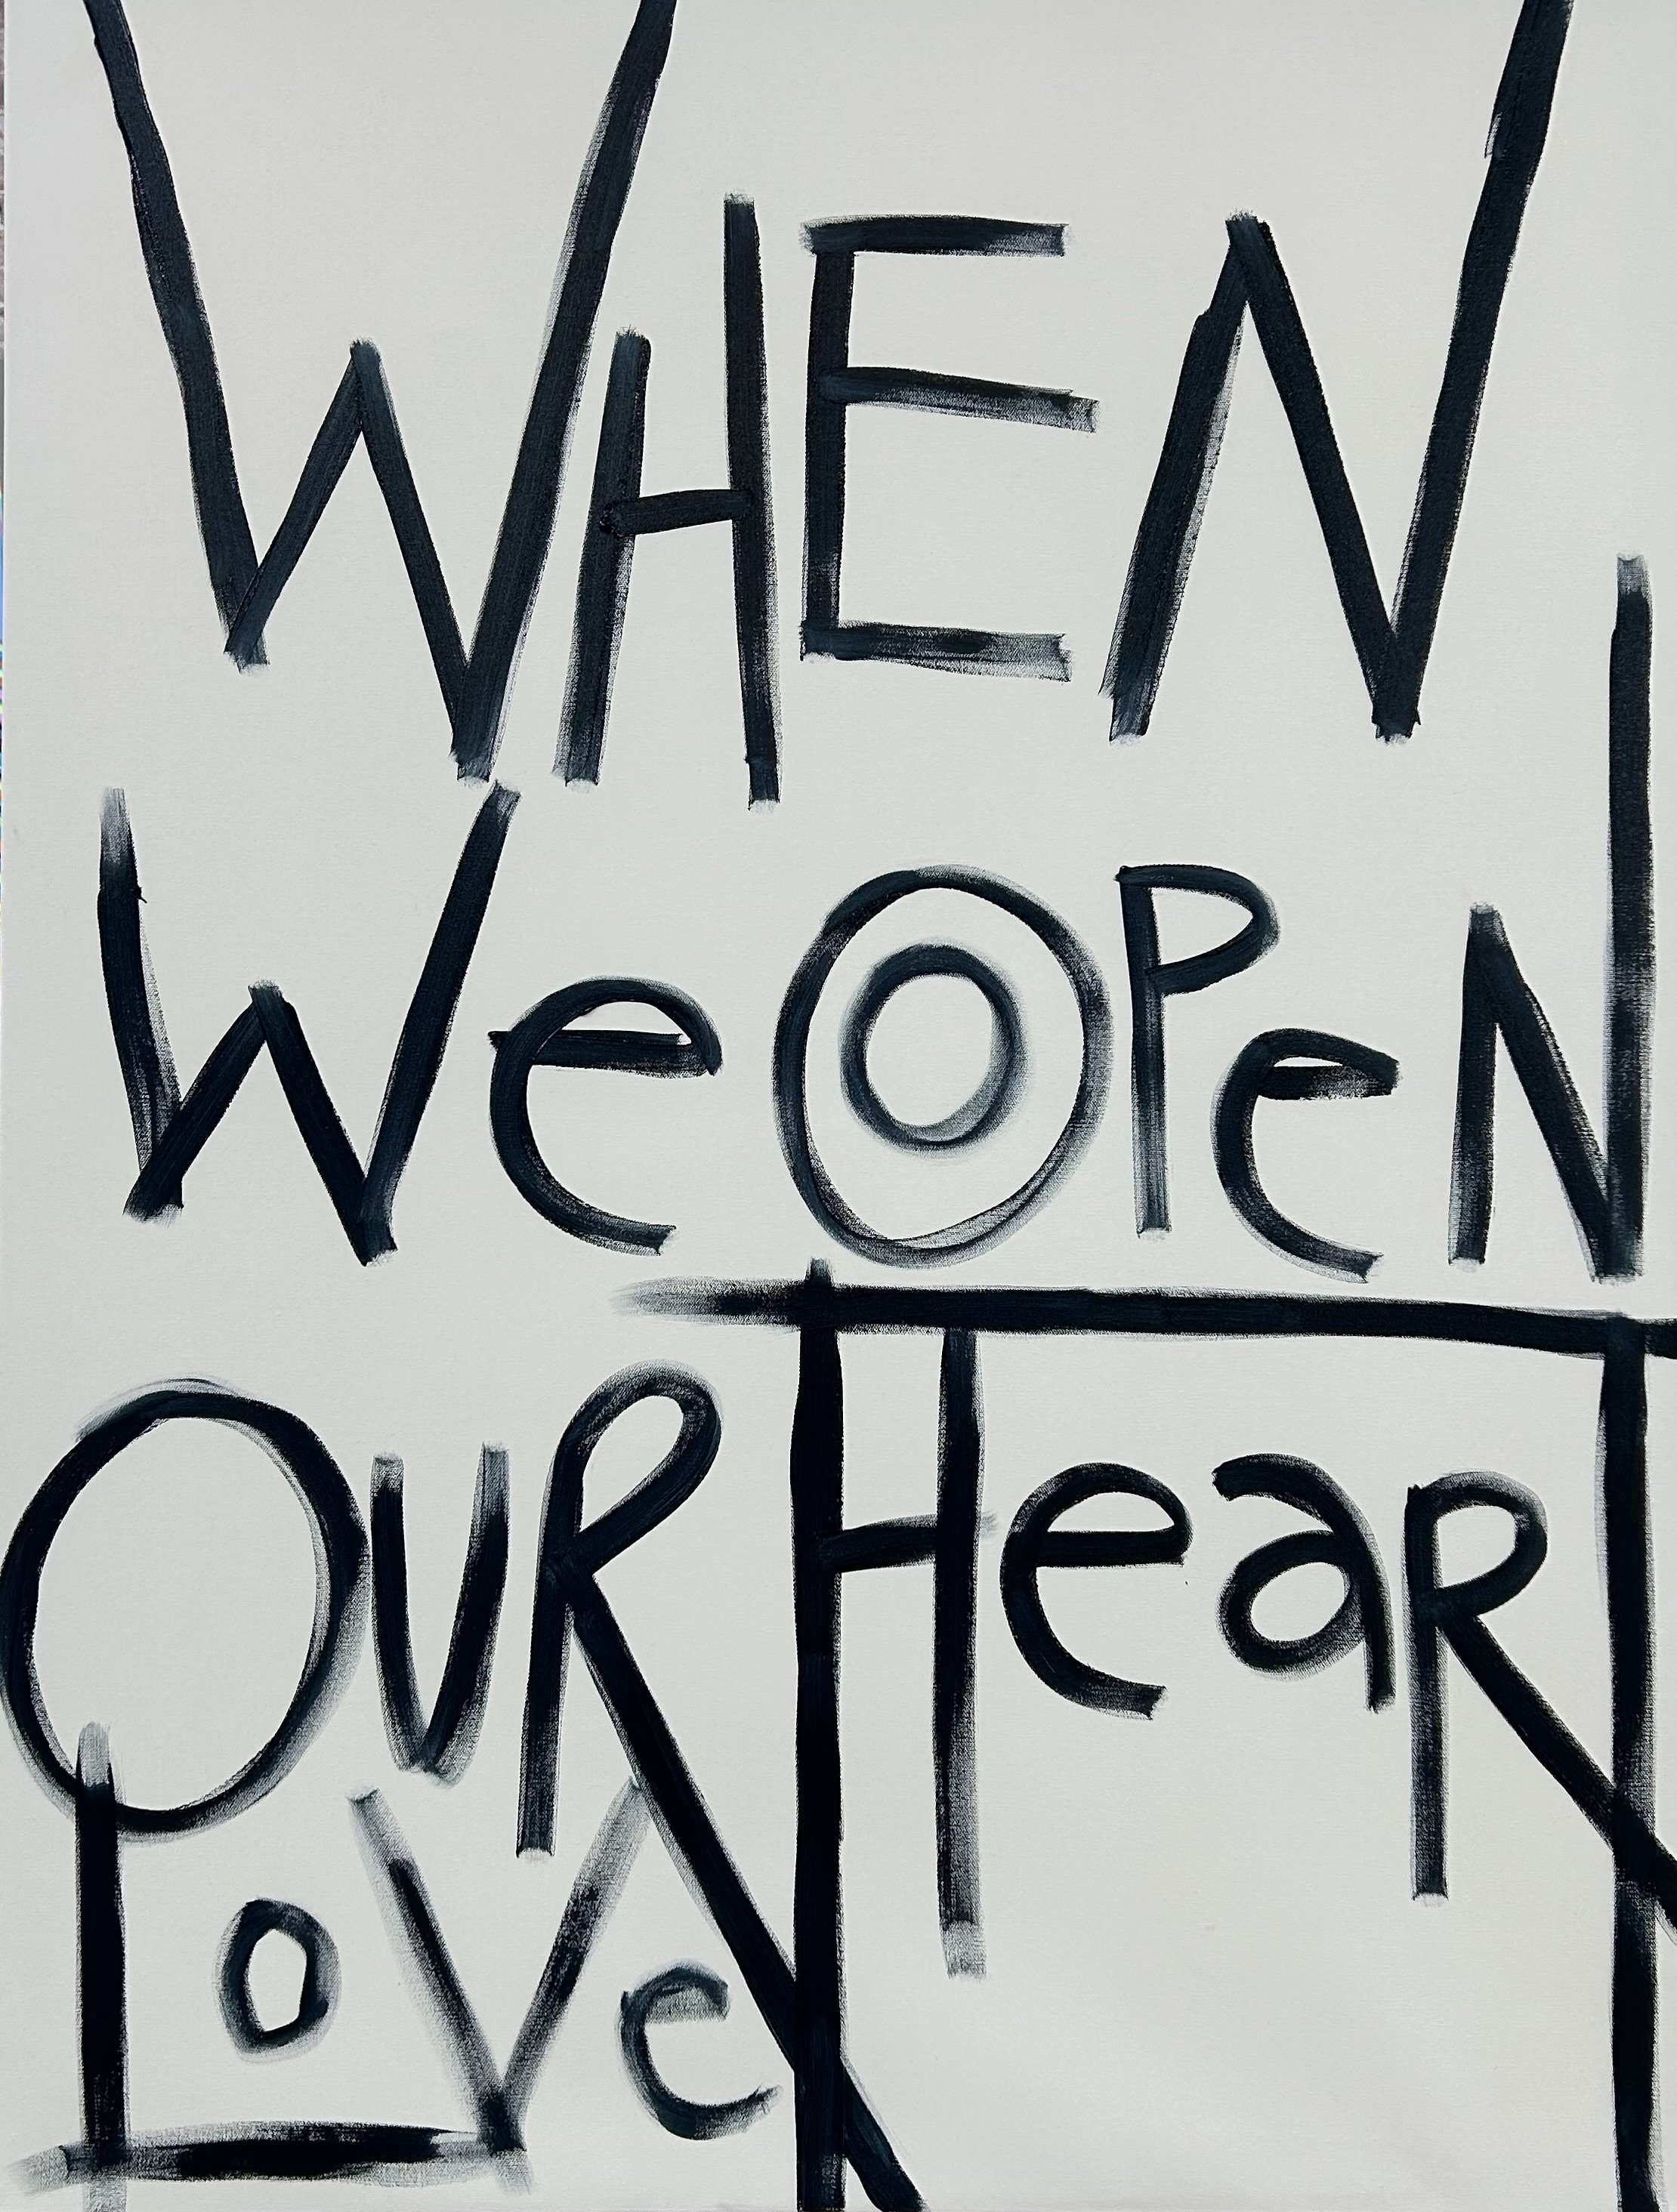 WHEN
We OPeN
OUR HeaRT
LoVe